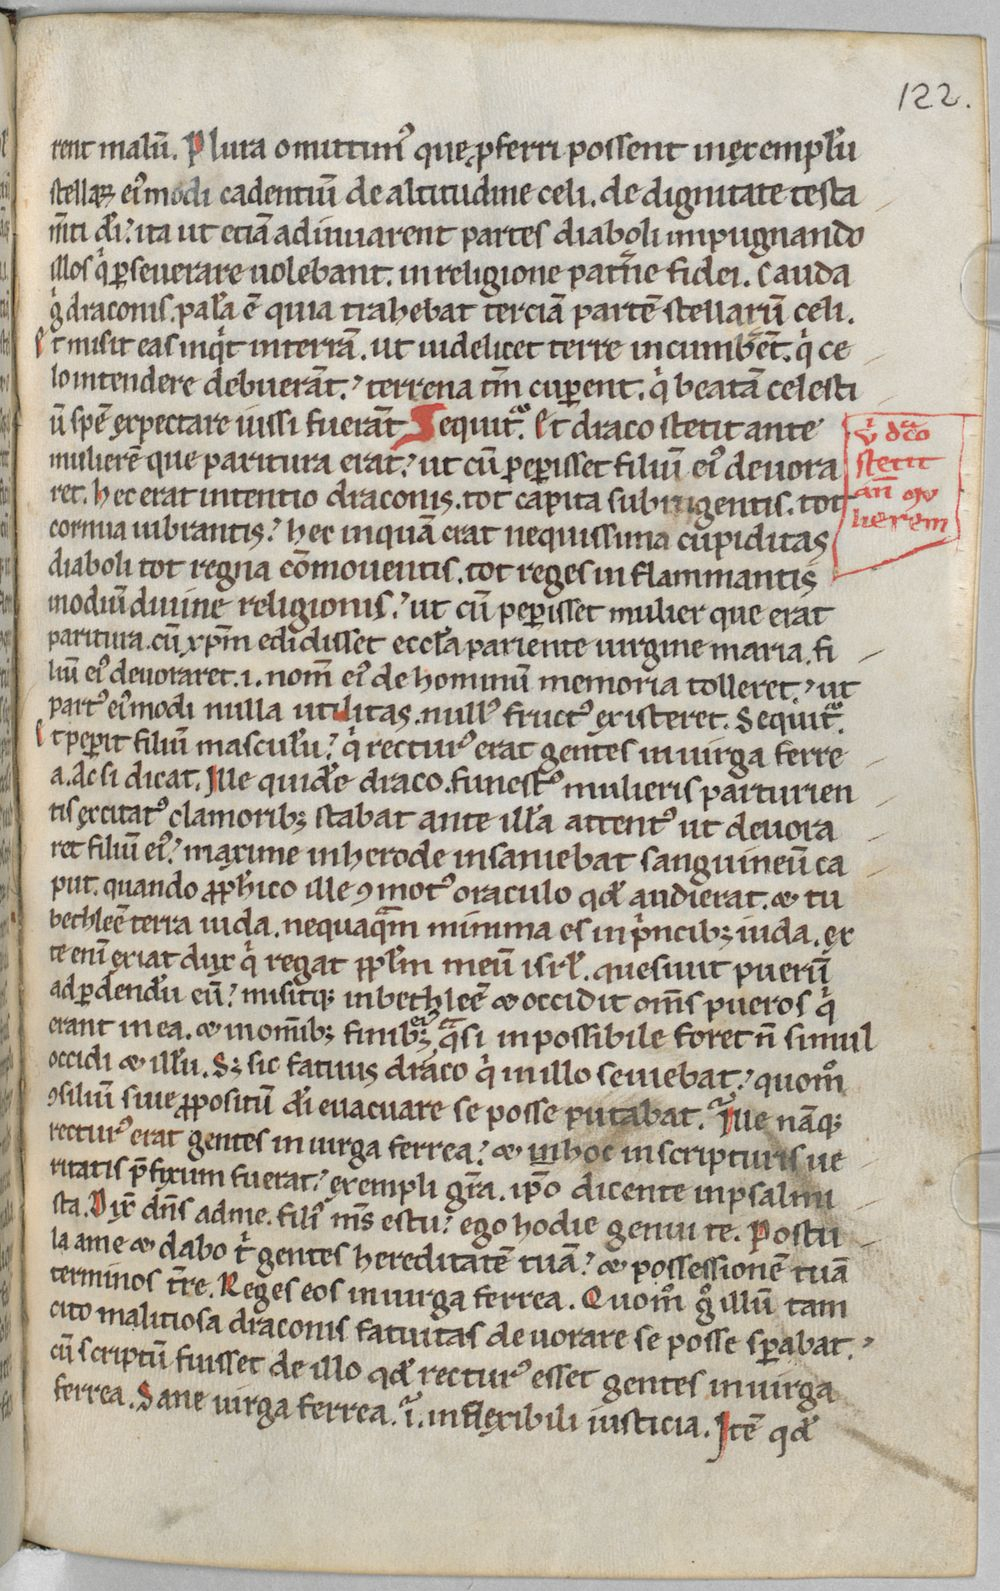 122.
rent malū. Plura omittimꝰ que ꝓferri possent in exemplū
stellaꝝ eiꝰmodi cadentiū de altitudine celi. de dignitate testa
m̄ti dī. ita ut eciā adiuuarent partes diaboli impugnando
illos q̇ ꝑseuerare uolebant. in religione pat̄ne fidei. Cauda
g̊ draconis. palā ē quia trahebat terciā partē stellarū celi.
Et misit eas inq̇t in terrā. ut uidelicet terre incumbēt. q̇ ce
lo intendere debuerāt. terrena tm̄ cuꝑent. q̇ beatā celesti
ū spē expectare iussi fuerāt. Sequit᷑. Et draco stetit ante
mulierē que paritura erat. ut cū peꝑisset filiū eiꝰ deuora
ret. hec erat intentio draconis. tot capita subrigentis. tot
cornua uibrantis. hec inquā erat nequissima cupiditas
diaboli tot regna cōmouentis. tot reges inflammantis
in odiū diuine religionis. ut cū peꝑisset mulier que erat
paritura. cū xp̄m edidisset eccl̄a pariente uirgine maria. fi
liū eiꝰ deuoraret. i. nom̄ eiꝰ de hominū memoria tolleret. ut
partꝰ eiꝰmodi nulla utilitas. nullꝰ fructꝰ existeret. Sequit᷑.
Et peꝑit filiū masculū. q̇ recturꝰ erat gentes in uirga ferre
a. Ac si dicat. Ille quidē draco. funestꝰ mulieris parturien
tis excitatꝰ clamoribꝫ stabat ante illā attentꝰ ut deuora
ret filiū eiꝰ. maxime in herode insaniebat sanguineū ca
put. quando ꝓph̄ico ille ꝯmotꝰ oraculo qd̄ audierat. & tu
bethleē terra iuda. nequaq̄m minima es in ṗncibꝫ iuda. ex
te eni̅ exiat dux q̇ regat ppl̄m meū isrl̄. quesiuit puerū
ad ꝑdendū eū. misitqꝫ in bethleē & occidit om̄s pueros q̇
erant in ea. & in om̄ibꝫ finibꝫ eiꝰ q̄si inpossibile foret n̄ simul
occidi & illū. Sꝫ sic fatuus draco q̇ in illo seuiebat. quom̊
ꝯsiliū siue ꝓpositū dī euacuare se posse putabat. Ille nāqꝫ
recturꝰ erat gentes in uirga ferrea. & in hoc in scripturis ue
ritatis p̄fixum fuerat. exempli gr̄a. ip̄o dicente in psalmi
sta. Dix̄ dn̄s ad me. filiꝰ m̄s es tu. ego hodie genui te. Postu
la a me & dabo t̊ gentes hereditatē tuā. & possessionē tuā
terminos t̄re. Reges eos in uirga ferrea. Quom̊ g̊ illū tam
cito malitiosa draconis fatuitas deuorare se posse sꝑabat.
cū scriptū fuisset de illo qd̄ recturꝰ esset gentes in uirga
ferrea. Sane uirga ferrea. i. inflexibili iusticia. Itē qd̄
dc̄o
stetit
an̄ mu
lierem